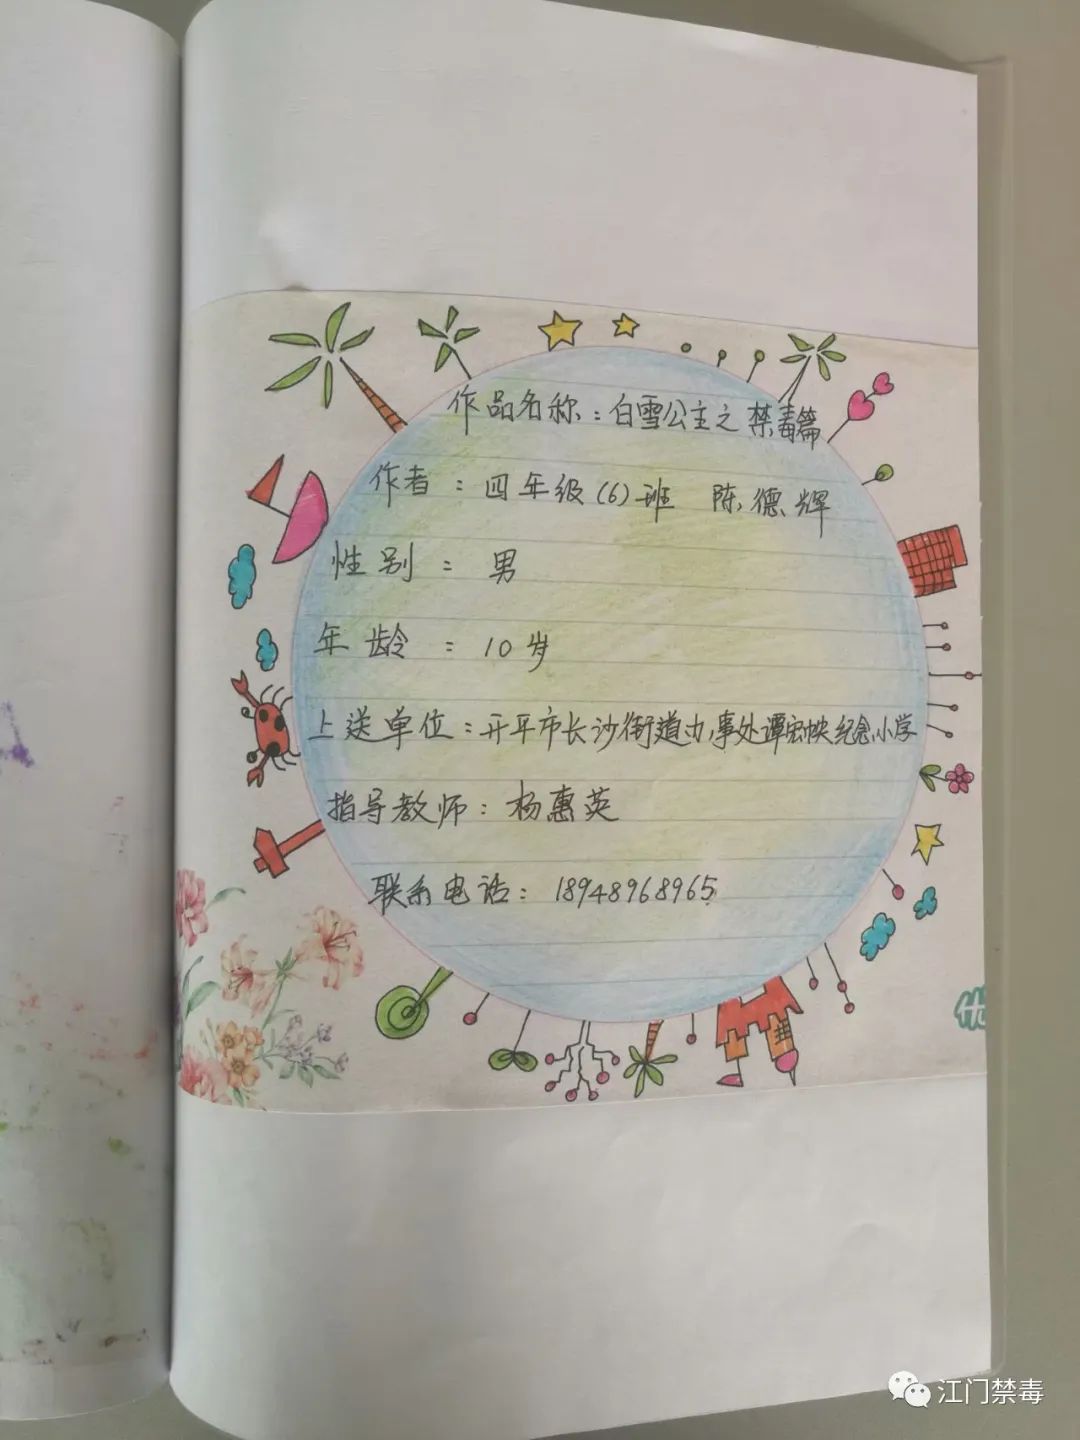 作品名称：白雪公主之禁毒篇
作者：四年级（6）班 陈德辉
性别：男
年龄：10岁
上送单位：开平市长沙街道办事处谭宏帙纪念小学
指导教师：杨惠英
联系电话：18948968965
江门禁毒